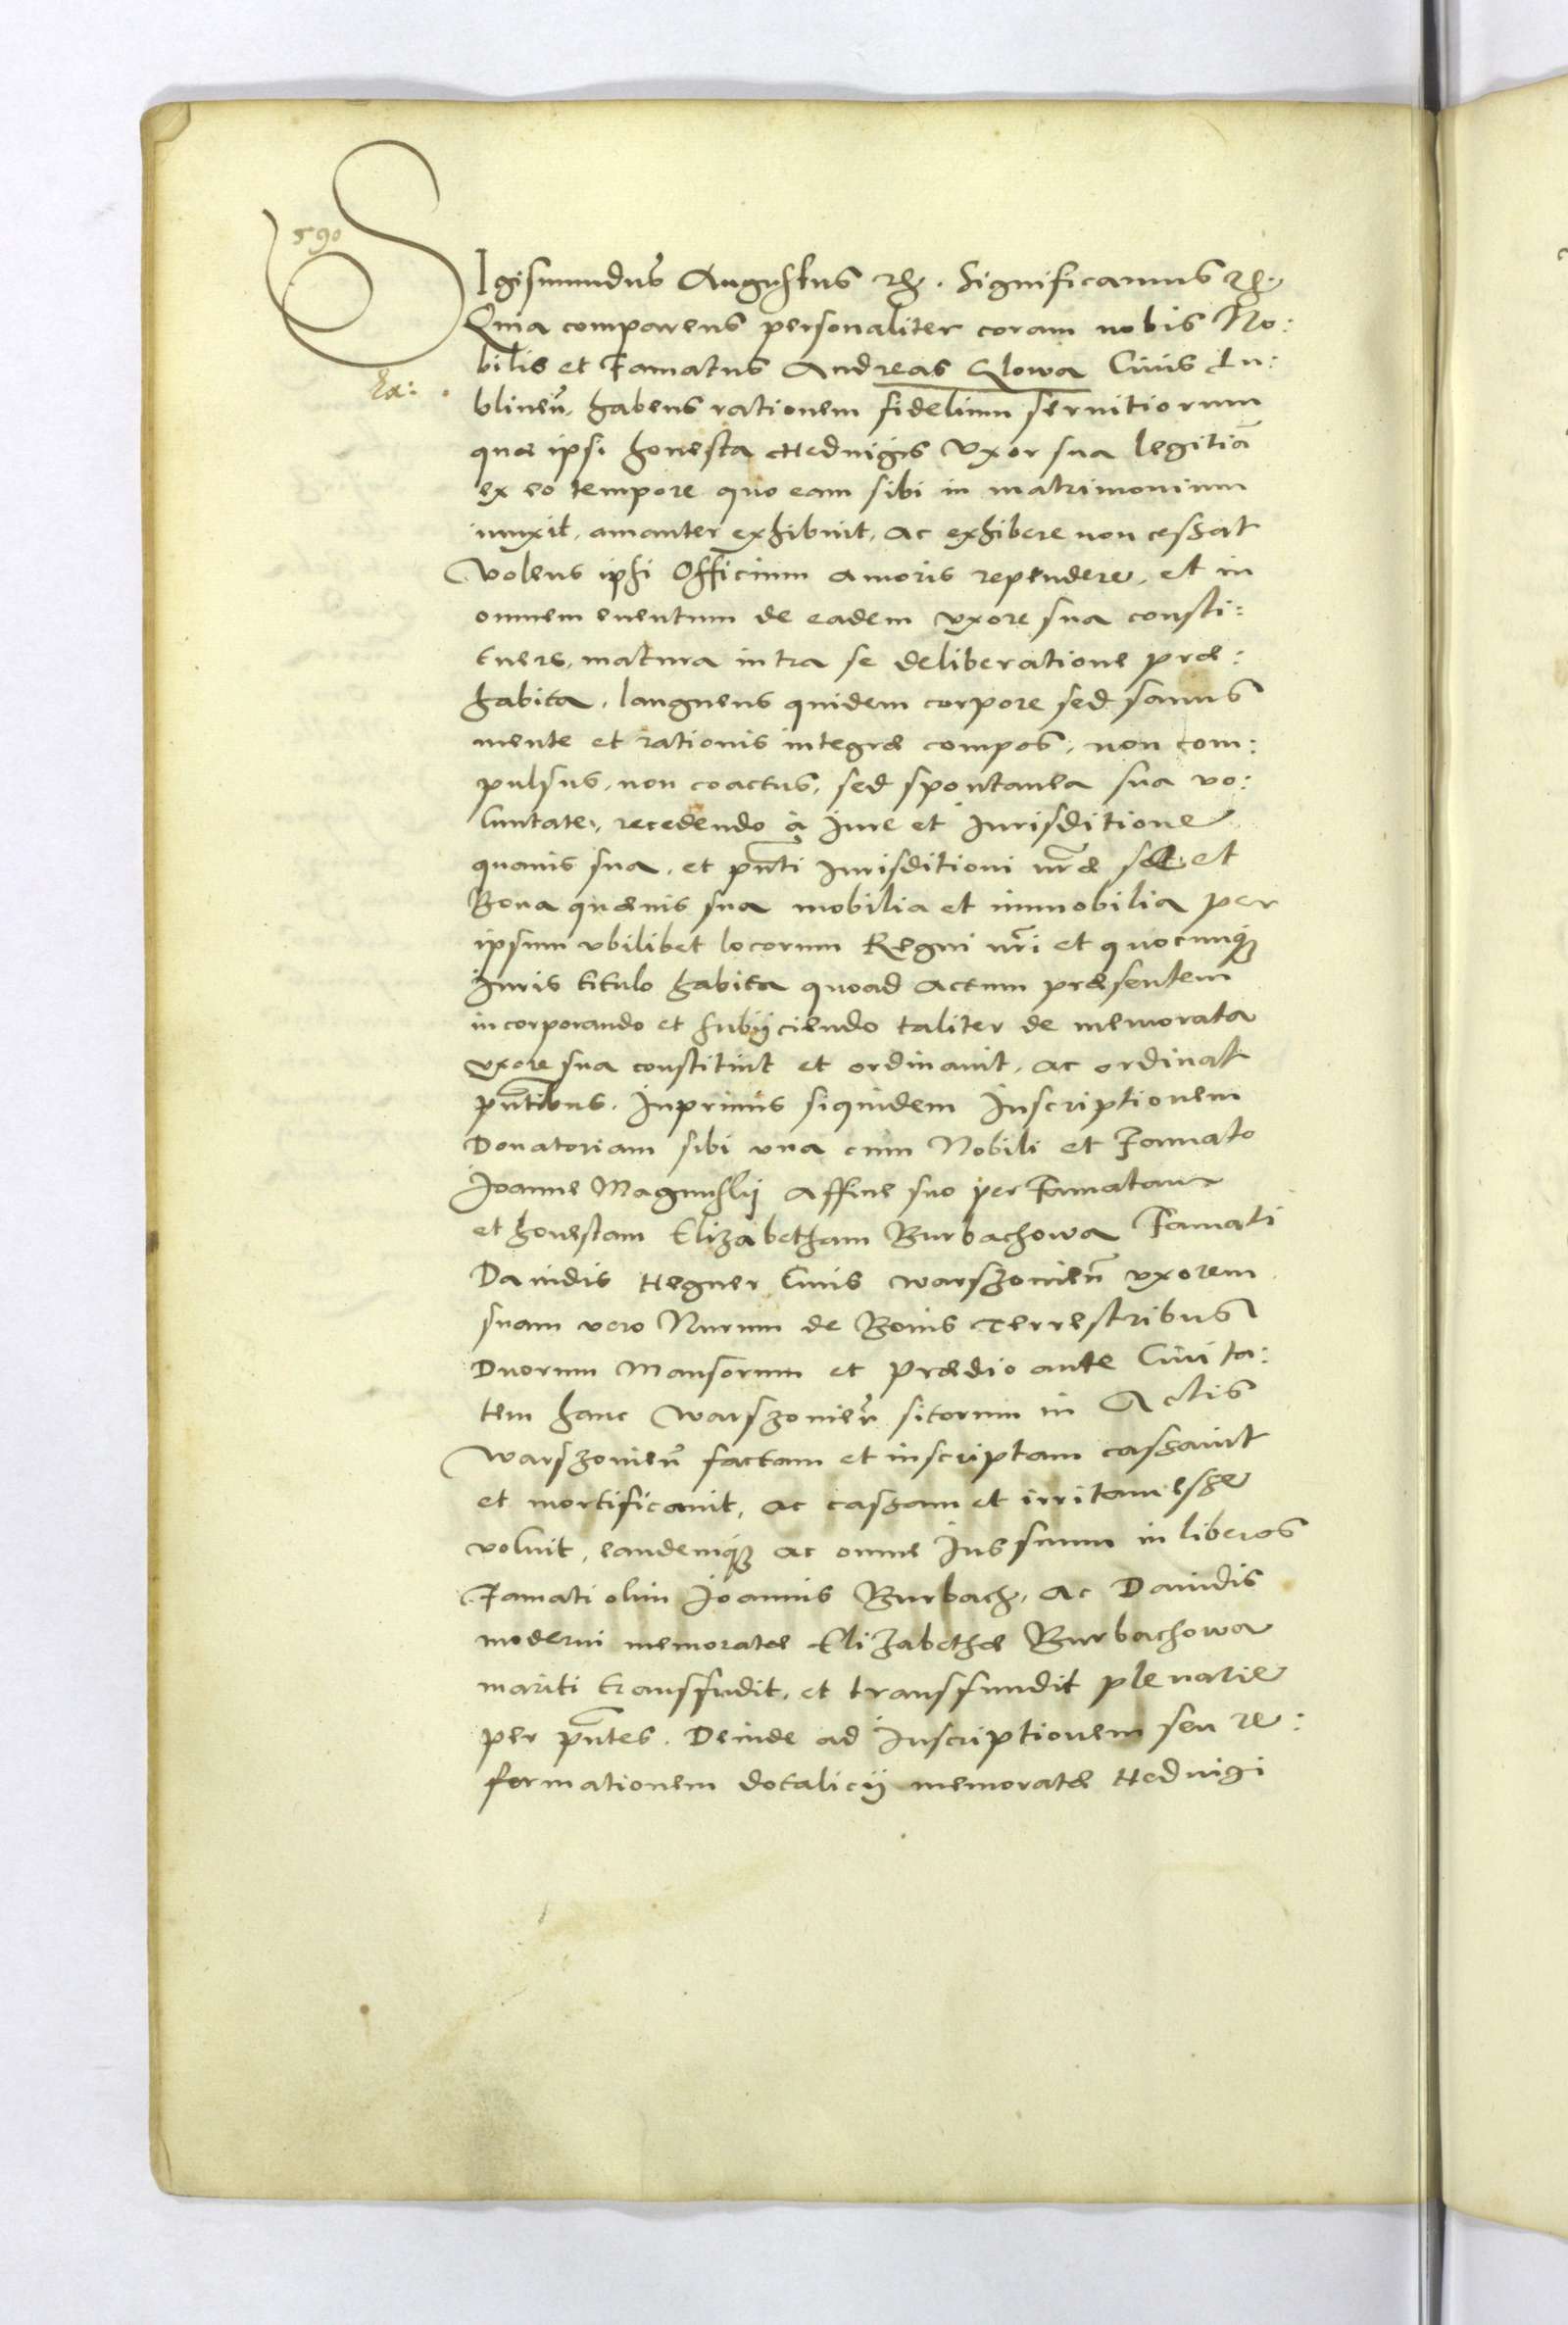 590
SIgismundus Augustus etc. Significamus etc.
Quia comparens personaliter coram nobis No:
bilis et Famatus Andreas Glowa Civis Lu:
Ex:
blineñ. habens rationem fidelium servitiorum
quae ipsi honesta Hedvigis Uxor sua legitiã
ex eo tempore quo eam sibi in matrimonium
iunxit, amanter exhibuit, ac exhibere non cessat
Volens ipsi Officium amoris rependere, et in
omnem eventum de eadem uxore sua consti:
tuere, matura intra se deliberatione prae:
habita, languens quidem corpore sed sanus
mente et rationis integrae compos, non com:
pulsus, non coactus, sed spontanea sua vo:
luntate, recedendo à Iure et Iurisditione
quavis sua, et pñti Iurisditioni nrae se et
Bona quaevis sua mobilia et immobilia per
ipsum ubilibet locorum Regni nri et quocunq
Iuris titulo habita quoad actum praesentem
incorporando et subijciendo taliter de memorata
uxore sua constituit et ordinavit, ac ordinat
pñtibus. Inprimis siquidem Inscriptionem
Donatoriam sibi una cum Nobili et Famato
Ioanne Magnuslij Affine suo per Famatam
et honestam Elizabetham Burbachowa Famati
Davidis Hegner Civis Warszovieñ uxorem
suam vero Nurum de Bonis Terrestribus
Duorum Mansorum et Praedio ante Civita:
tem hanc Warszovieñ sitorum in Actis
Warszovieñ factam et inscriptam cassavit
et mortificavit, ac cassam et irritam esse
voluit, eandemq ac omne Ius suum in liberos
Famati olim Ioannis Burbach, ac Davidis
moderni memoratae Elizabethae Burbachowa
mariti transfudit, et transfundit plenarie
per pñtes. Deinde ad Inscriptionem seu re:
formationem dotalicij memoratae Hedvigi